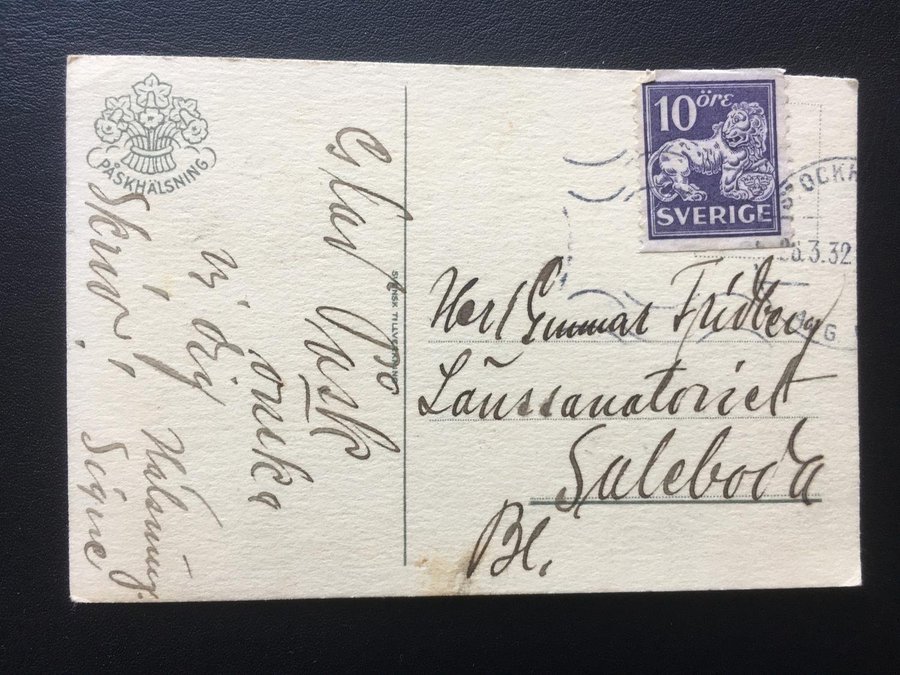 PÅSKHÄLSNING
Glad Påsk
önska
vi dig
Skriv!
Hälsning.
Signe
SVENSK TILLVERKNING
10 öre
SVERIGE
STOCKH
26.3.32
Herr Gunnar Fridberg
Länssanatoriet
Saleboda
Bl.